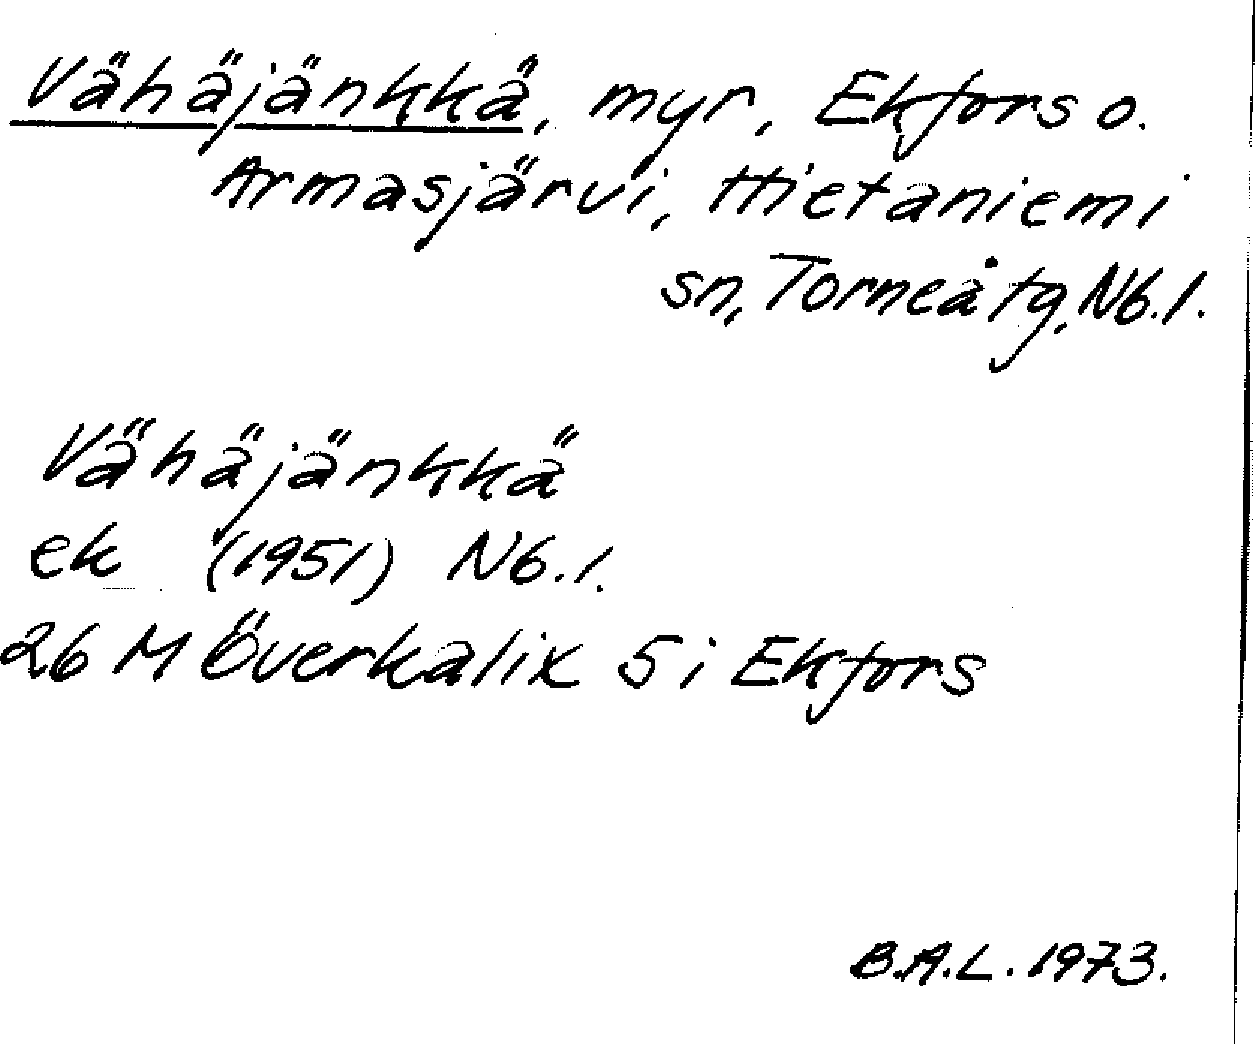 Vähäjänkkä, myr, Ekfors o.
Armasjärvi, Hietaniemi
sn, Torneå tg, Nb.l.
Vähäjänkkä
ek (1951) Nb.l.
26 M Överkalix 5 i Ekfors
B.A.L. 1973.